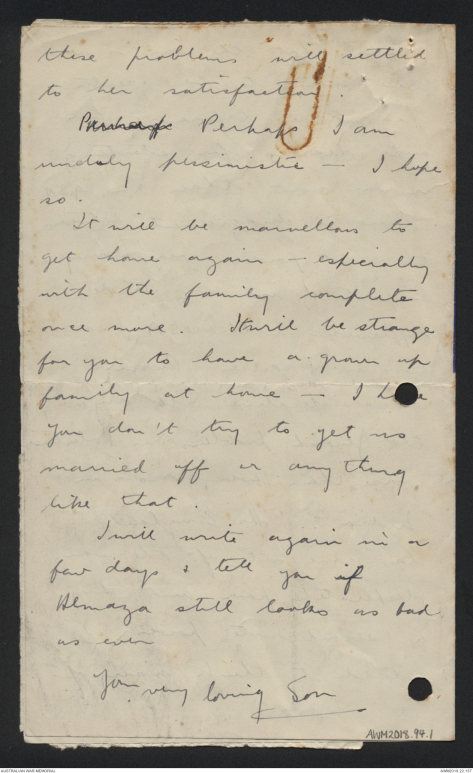 these problems will settled
to her satisfaction.
Perhaps I am
unduly pessimistic — I hope
so.
It will be marvellous to
get home again – especially
with the family complete
once more. It will be strange
for you to have a grown up
family at home — I hope
you don't try to get us
married off or anything
like that.
I will write again in a
few days & tell you if
Almaza still looks as bad
as ever
Your very loving Son
AWM2018.94.1
AUSTRALIAN WAR MEMORIAL